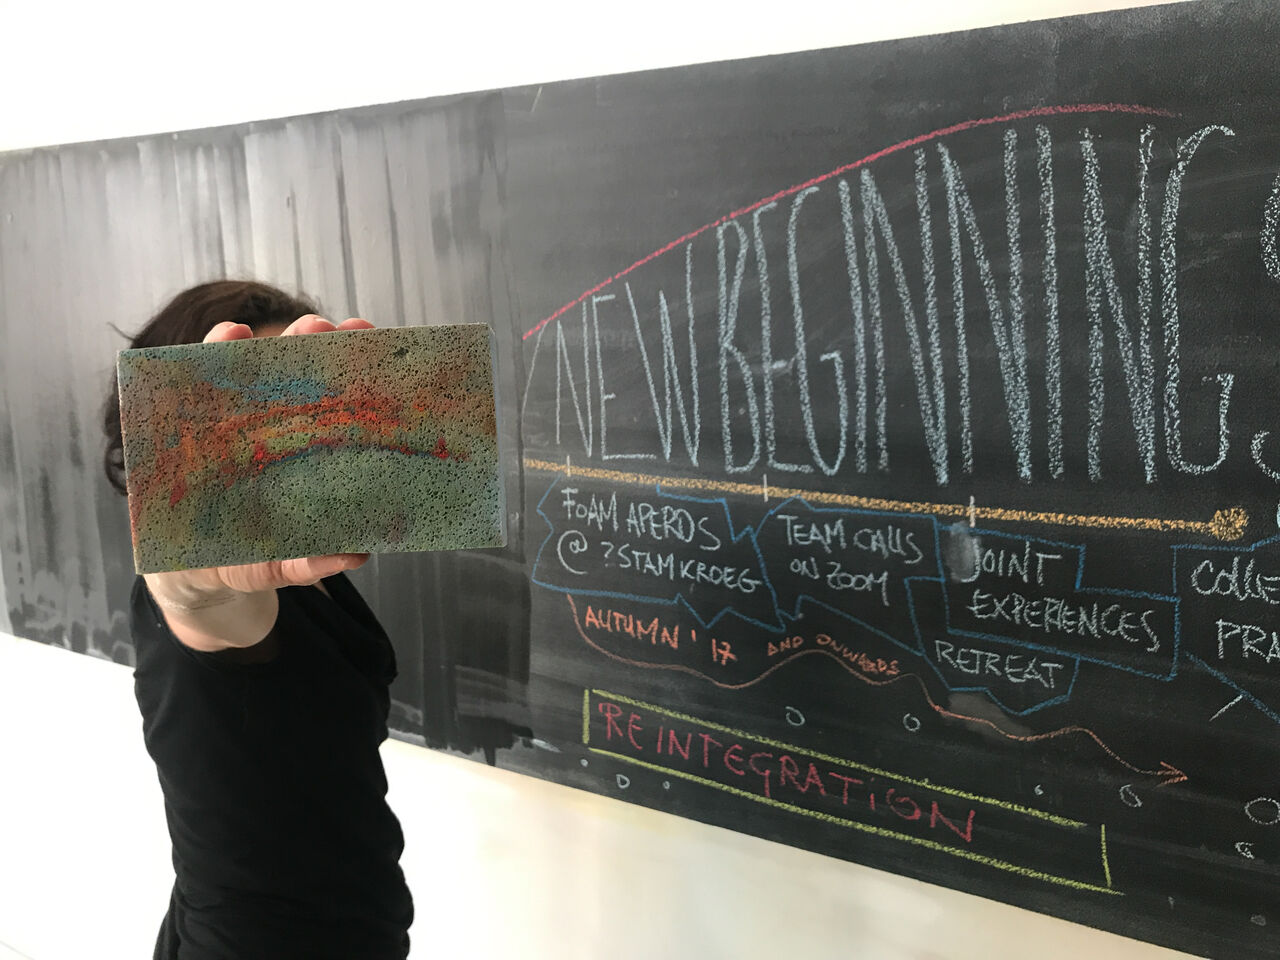 NEW BEGINNINGS
FOAM APEROS
@ ?STAMKROEG
TEAM CALLS
ON ZOOM
JOINT
EXPERIENCES
RETREAT
COLLE
PRA
AUTUMN '17 AND ONWARDS
REINTEGRATION